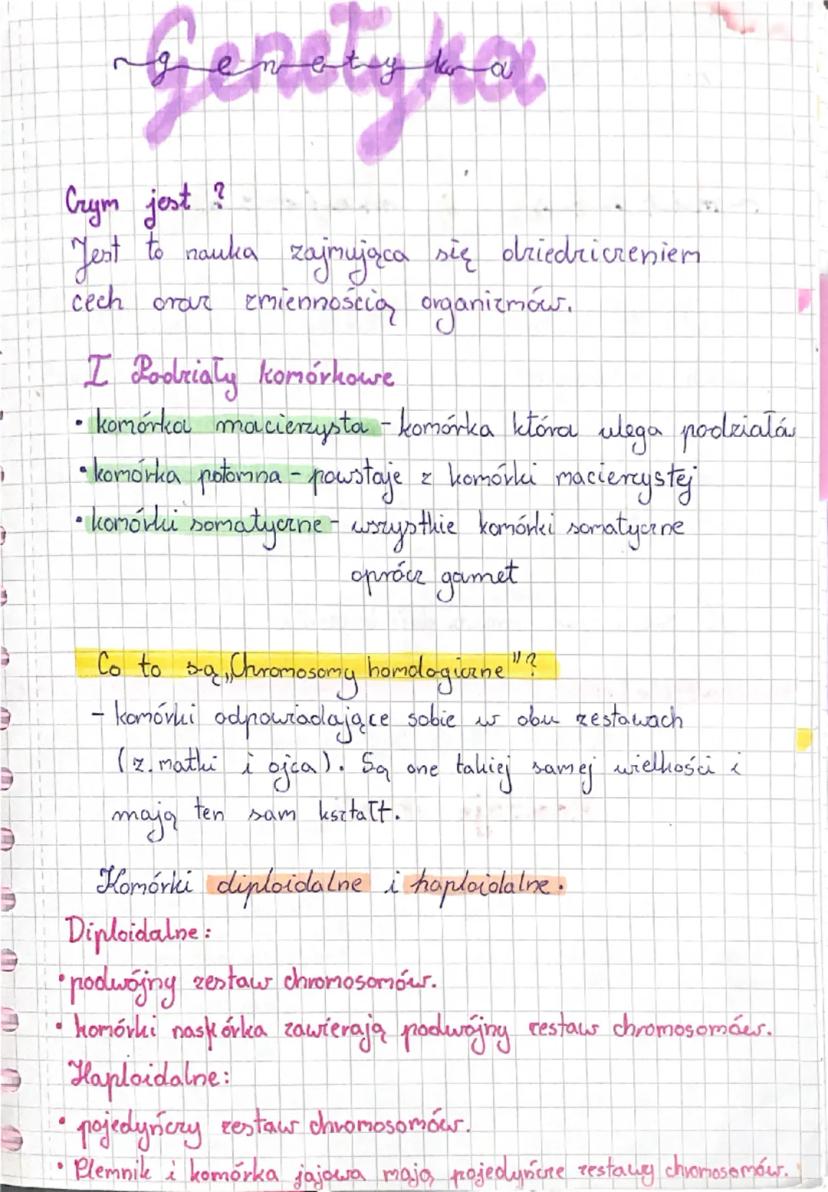 Genetyka
genetyka
Czym jest?
Jest to nauka zajmująca się dziedziczeniem
cech oraz zmiennością organizmów.
I Podziały komórkowe
• komórka macierzysta - komórka która ulega podziałá
• komórka potomna - powstaje z komórki macierzystej
• komórki somatyczne - wszystkie komórki somatyczne
oprócz gamet
Co to są „Chromosomy homologiczne"?
- komórki odpowiadające sobie w obu zestawach
(z. matki i ojca). Są one takiej samej wielkości i
mają ten sam kształt.
Komórki diploidalne i haploidalne.
Diploidalne:
• podwójny zestaw chromosomów.
• komórki naskórka zawierają podwójny zestaw chromosomów.
Haploidalne:
• pojedyńczy zestaw chromosomów.
• Plemnik i komórka jajowa mają pojedyńcze zestawy chromosomów.